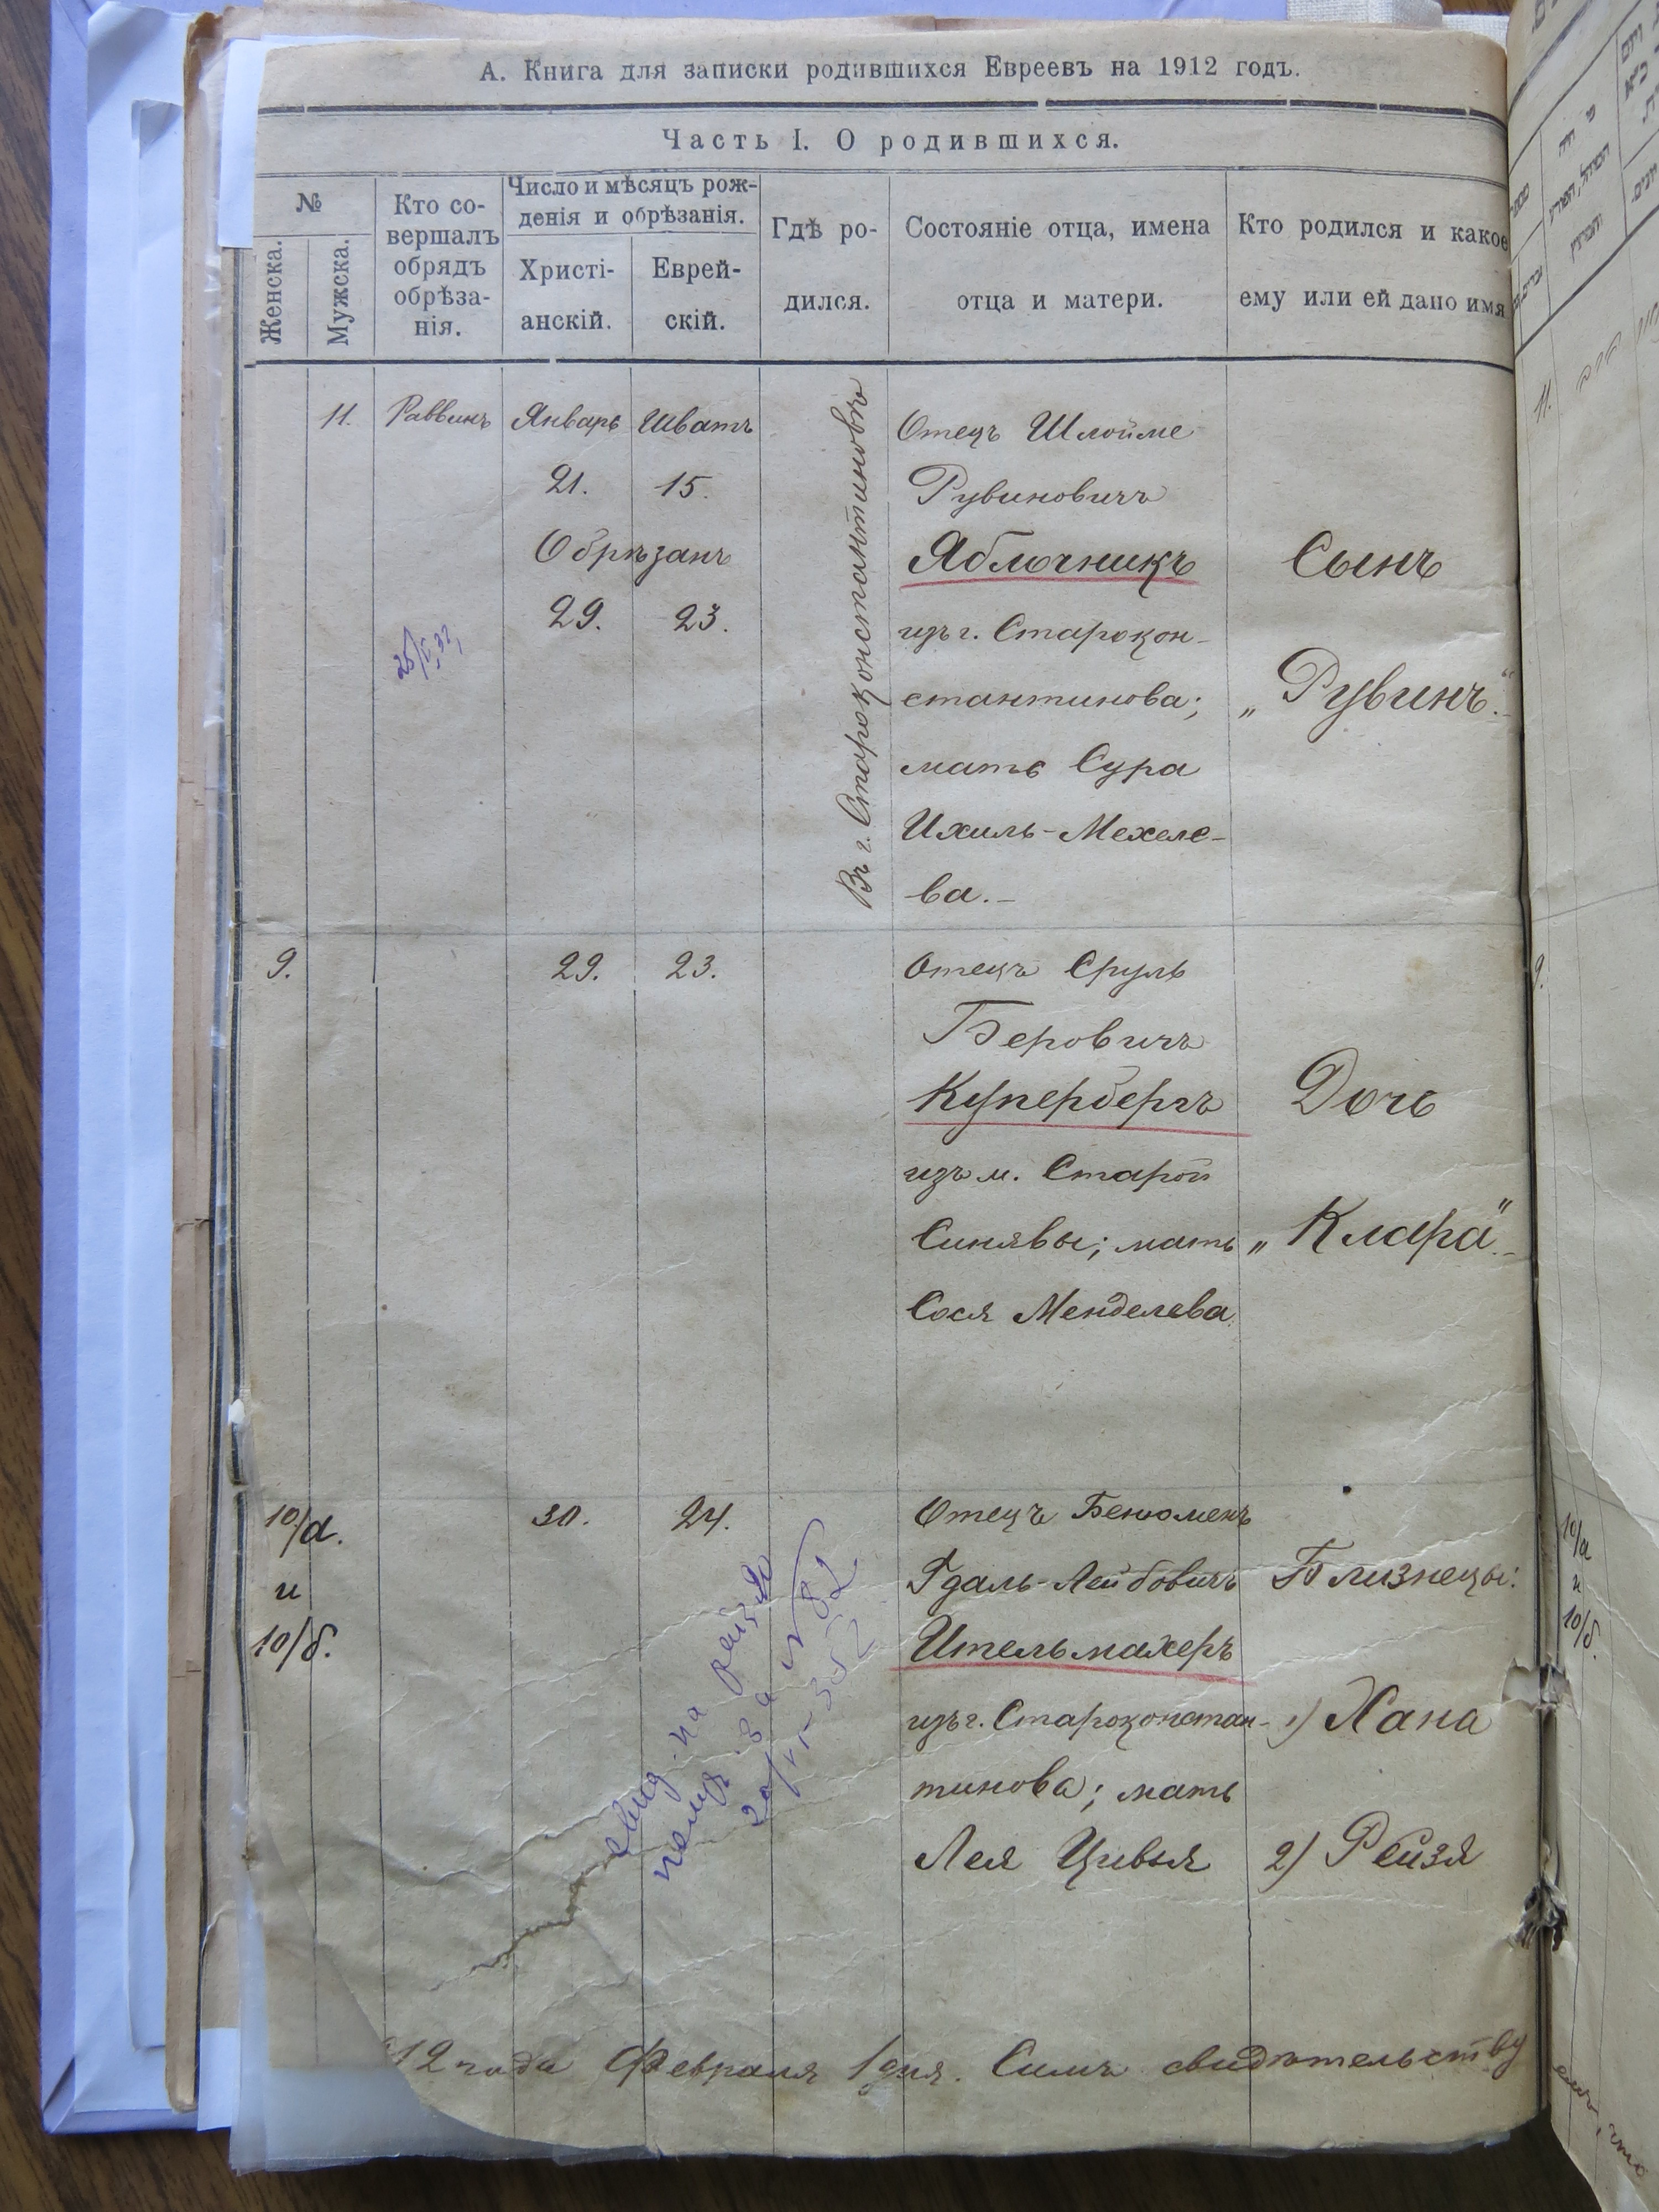 А. Книга для записки родившихся Евреевъ на 1912 годъ.
Часть I. О родившихся.
№
Женска.
Мужска.
Кто со-
вершалъ
обрядъ
обрѣза-
нія.
Число и мѣсяцъ рож-
денія и обрѣзанія.
Христі-
анскій.
Еврей-
скій.
Гдѣ ро-
дился.
Состояніе отца, имена
отца и матери.
Кто родился и какое
ему или ей дано имя
11.
Раввинъ
Январь
21.
Шватъ
15.
Обрѣзанъ
29.
23.
Въ г. Староконстантиновѣ
Отецъ Шлойме
Рувиновичъ
Яблочникъ
изъ г. Старокон-
стантинова;
мать Сура
Ихиль-Мехеле-
ва.-
Сынъ
„Рувинъ“.-
9.
29.
23.
Отецъ Сруль
Беровичъ
Купербергъ
изъ м. Старой
Синявы; мать
Сося Менделева
Дочь
„Клара“.-
10/а.
и
10/б.
30.
24.
Отецъ Бенюменъ
Гдаль-Лейбовичъ
Ительмахеръ
изъ г. Староконстан-
тинова; мать
Лея Цивья
Близнецы:
1) Хана
2) Рейзя
12 года Февраля 1 дня. Симъ свидѣтельству
11.
9.
10/а
и
10/б.